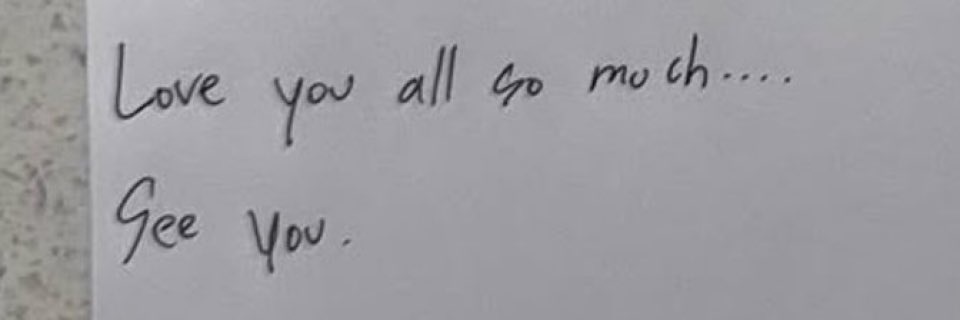 Love you all so much....
See you.